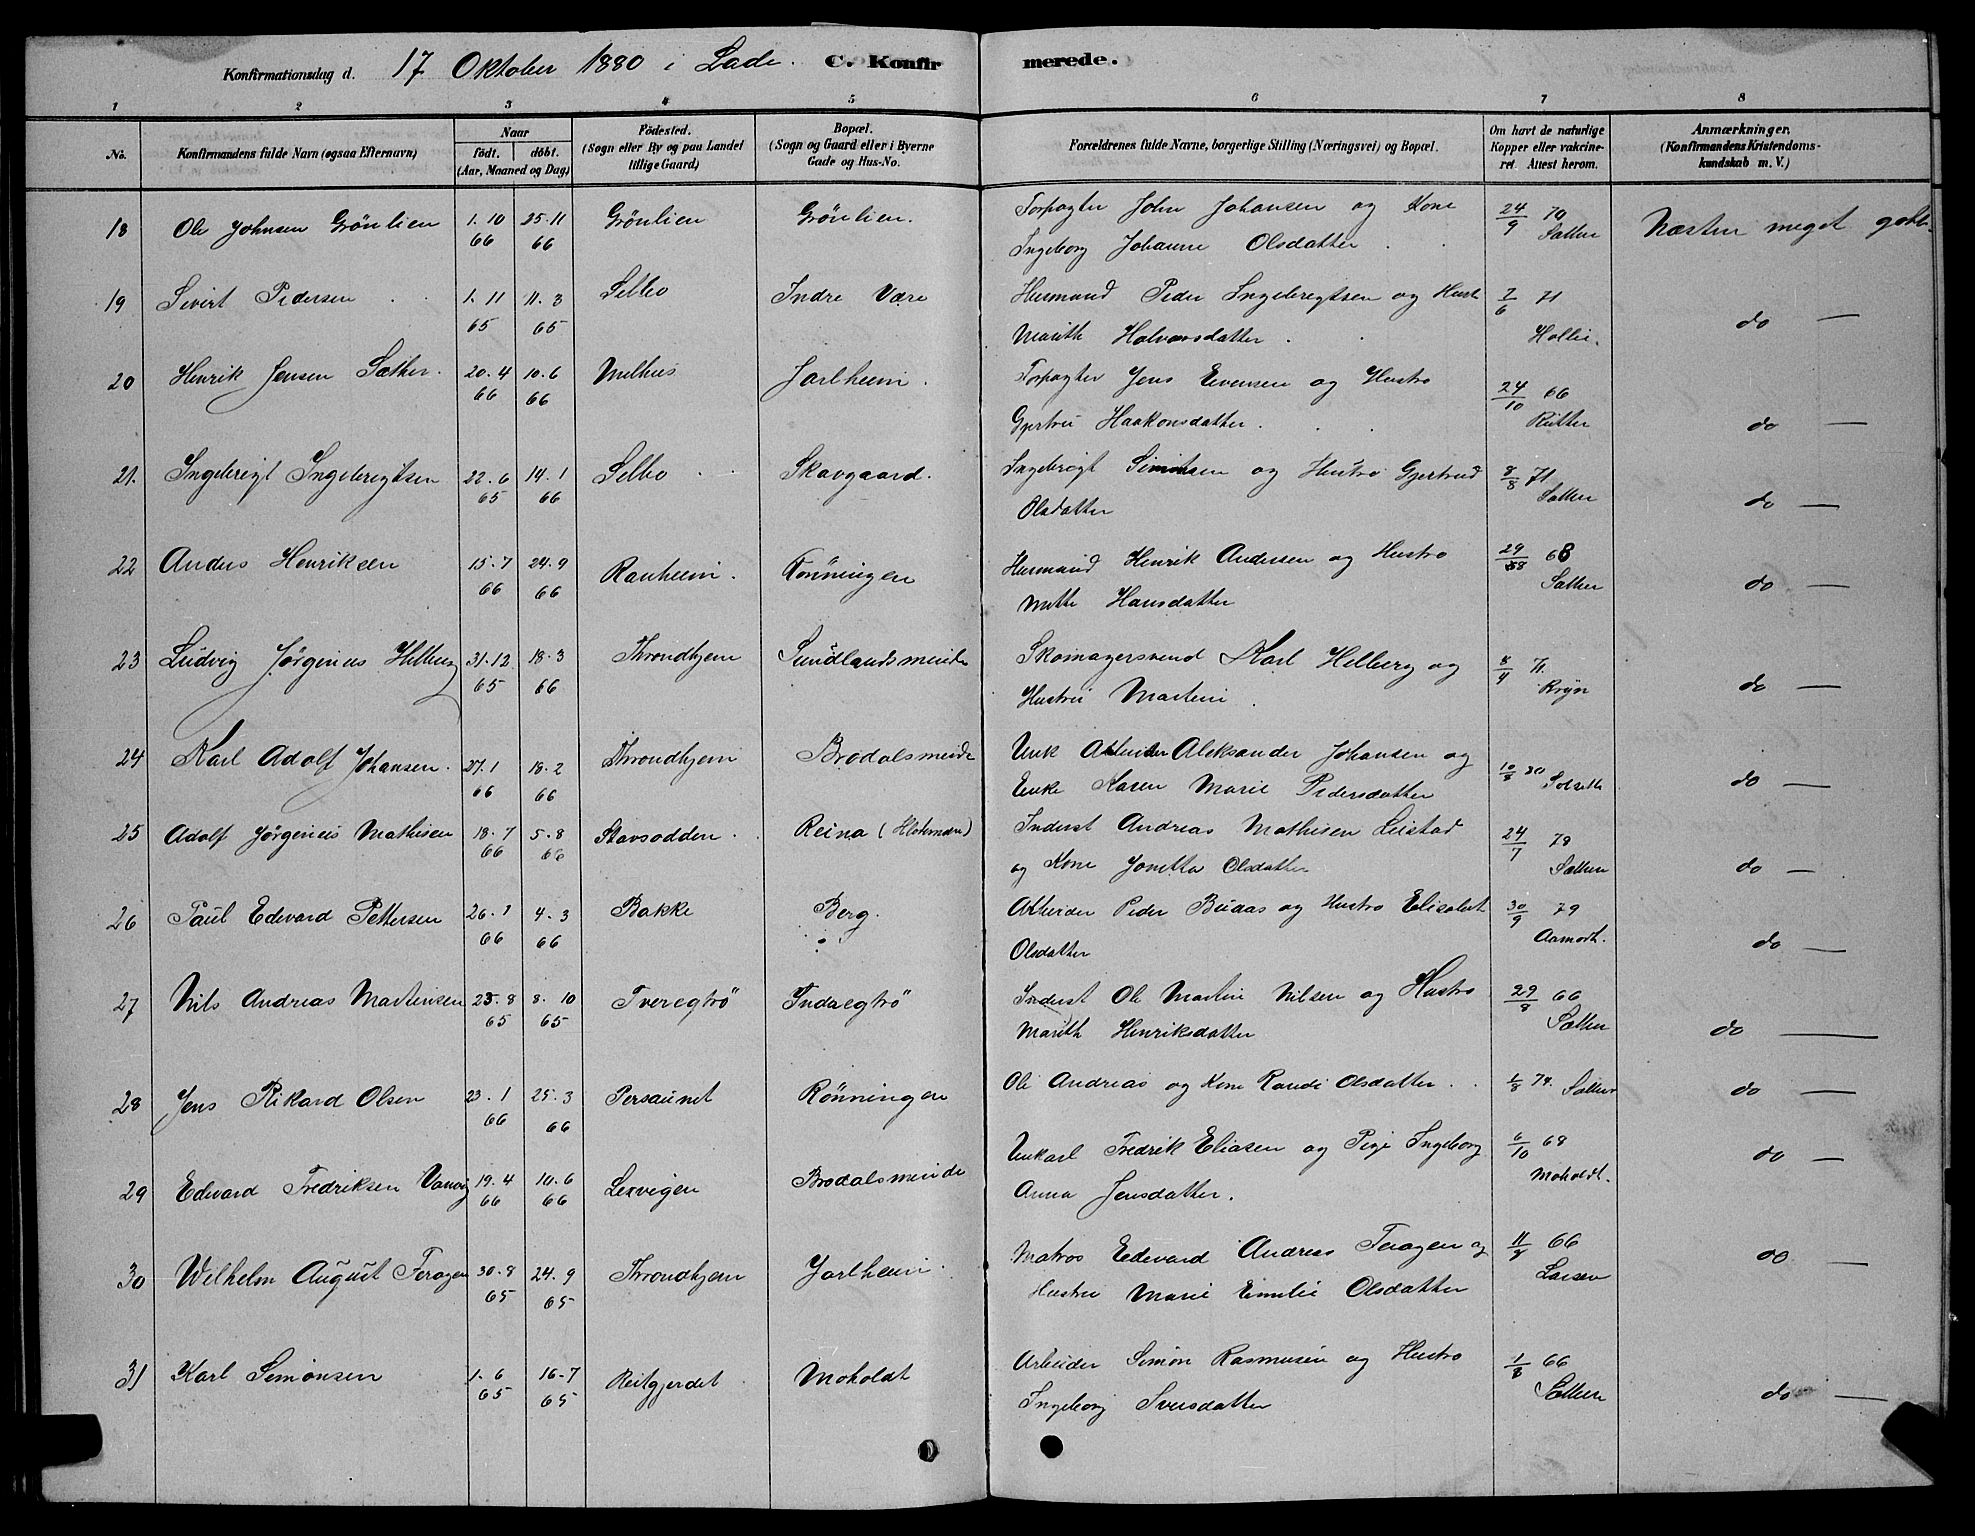 Konfirmationsdag d. 17 Oktober 1880 i Lade. C. Konfirmerede.
1 2 3 4 5 6 7 8
No. Konfirmandens fulde Navn (ogsaa Efternavn) Naar födt. döbt. (Aar, Maaned og Dag) Födested. (Sogn eller By og paa Landet tillige Gaard) Bopæl. (Sogn og Gaard eller i Byerne Gade og Hus-No. Forældrenes fulde Navne, borgerlige Stilling (Næringsvei) og Bopæl. Om havt de naturlige Kopper eller vakcineret. Attest herom. Anmærkninger. (Konfirmandens Kristendomskundskab m. V.)
18 Ole Johnsen Grönlien 1.10 66 25.11 66 Grönlien Grönlien. Forpagter John Johansen og Kone
Ingeborg Johanne Olsdatter. 24/9 70 Sæther Næsten meget godt.
19 Sivert Pedersen 1.11 65 11.3 65 Selbo Indre Være Husmand Peder Ingebregtsen og Hust
Marith Halvorsdatter. 7/6 71 do —
20 Henrik Jensen Sæther. 20.4 66 10.6 66 Melhus Jarlheim. Forpagter Jens Evensen og Hustro
Gjertru Haakonsdatter. 24/10 66 Rutter do —
21. Ingebrigt Ingebrigtsen 22.6 65 14.1 66 Selbo Skavgaard. Ingebrigt Simonsen og Hustro Gjertrud
Olsdatter 8/8 71 Sæther do —
22 Anders Henriksen 15.7 66 24.9 66 Ranheim. Rönningen Husmand Henrik Andersen og Hustro
Mette Hansdatter 29/8 68 Sæther do —
23 Ludvig Jörginius Helberg 31.12 65 18.3 66 Throndhjem Sundlandsmeinde Skomagersvend Karl Helberg og
Hustru Martini. 8/4 71. Kryn do —
24 Karl Adolf Johansen. 27.1 66 18.2 66 Throndhjem Brodalsmeinde Unk Arbeider Aleksander Johansen og
Enke Karen Marie Pedersdatter 10/8 80 do —
25 Adolf Jörginius Mathisen 18.7 66 5.8 66 Stavsodden. Reina Inderst Andreas Mathisen Leistad
og Kone Jonetta Olsdatter 24/7 78 Sæther do —
26 Paul Edevard Pettersen 26.1 66 4.3 66 Bakke Berg. Arbeider Peder Buaas og Hustro Elisabet
Olsdatter 30/9 79 Aamodt. do —
27 Nils Andreas Martinsen 23.8 65 8.10 65 Tveregtrö Indaegtrö Inderst Ole Martin Nilsen og Hustro
Marith Henriksdatter 29/8 66 Sæther do —
28 Jens Rikard Olsen 23.1 66 25.3 66 Persaunet Rönningen Ole Andreas og Kone Randi Olsdatter. 1/8 74. Sæther do —
29 Edevard Fredriksen Vanvig 19.4 66 10.6 66 Lexvigen Brodalsmeinde Unkarl Fredrik Eliasen og Pige Ingeborg
Anna Jensdatter. 6/10 68 Moholdt. do —
30 Wilhelm August Feragen 30.8 65 24.9 65 Throndhjem Jarlheim. Matros Edevard Andreas Feragen og
Hustru Marie Emilie Olsdatter 66 Larsen do —
31 Karl Simonsen 1.6 65 16-7 65 Reitgjerdet Moholdt Arbeider Simon Rasmusen og Hustro
Ingeborg Sversdatter 1/8 66 Sæther do —